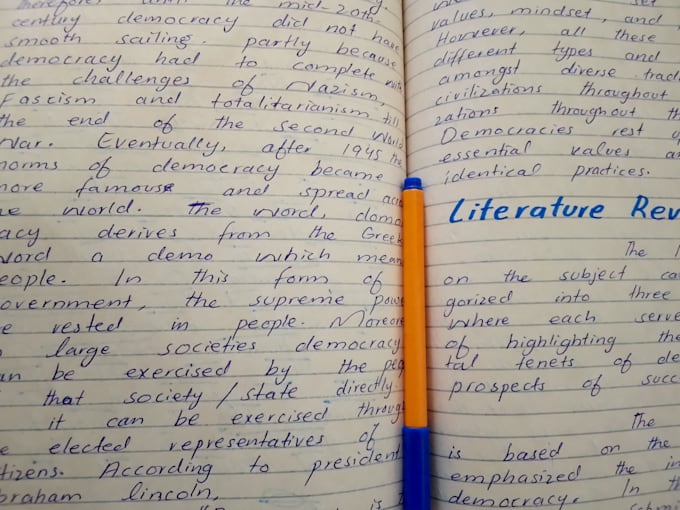 the mid-20th
century democracy did not have
smooth sailing. partly because
democracy had to complete with
the challenges of Nazism,
Fascism and totalitarianism till
the end of the second World
War. Eventually, after 1945 the
norms of democracy became
more famous and spread
world. The word, democ
acy derives from the Greek
word a demo which mean
eople. In this form of
overnment, the supreme powe
e vested in people. Moreove
large societies democracy
an be exercised by the peo
that society/state directly
it can be exercised through
e elected representatives of
tizens. According to president
braham lincoln,
values, mindset, and
However, all these
different types and
amongst diverse trad
civilizations throughout
zations throughout th
Democracies rest u
essential values a
identical practices.
Literature Rev
The
on the subject ca
gorized into three
where each serve
of highlighting the
tal tenets of de
prospects of succ
The
is based on the
emphasized the in
democracy. In th